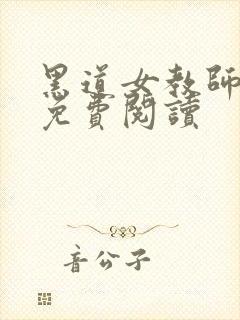 黑道女教師
免費閱讀
音公子